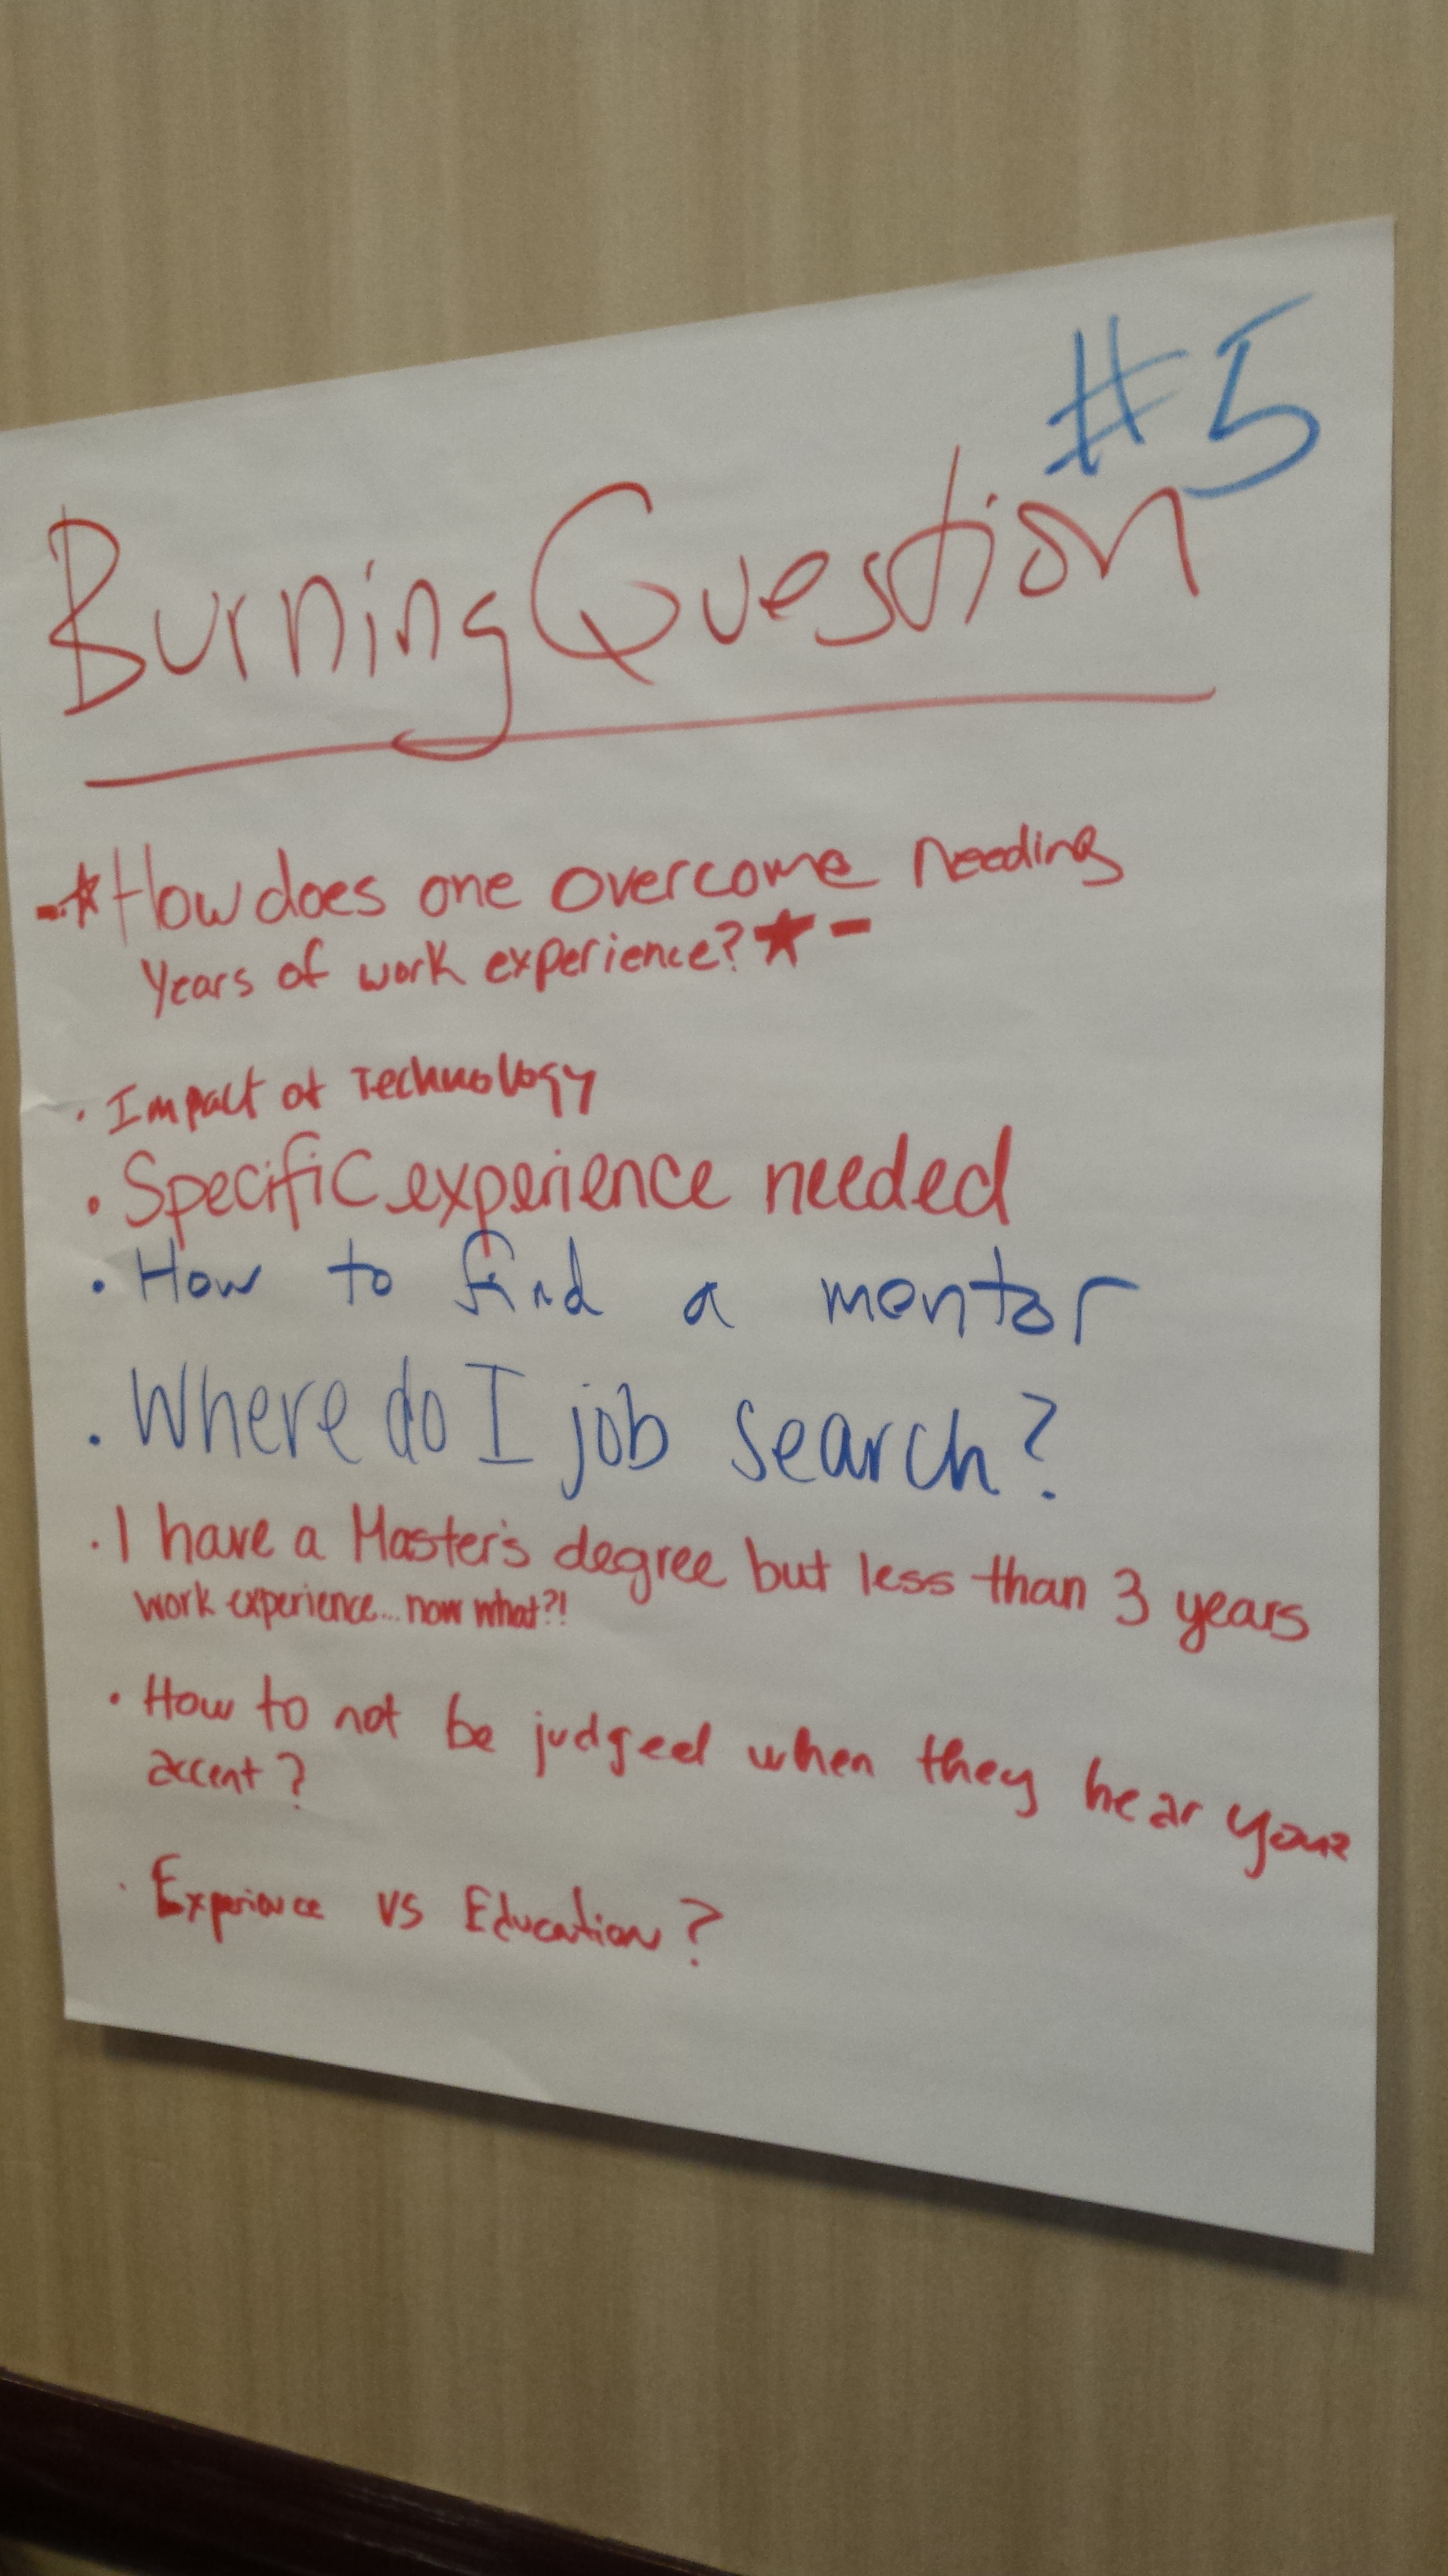 #5
Burning Question
-★How does one overcome needing
years of work experience?★-
· Impact of Technology
· Specific experience needed
· How to find a mentor
· Where do I job search?
· I have a Master's degree but less than 3 years
work experience... now what?!
· How to not be judged when they hear your
accent?
· Experience vs Education?